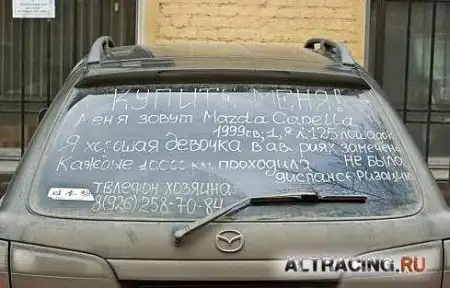 КУПИТЕ МЕНЯ!
Меня зовут Mazda Capella
1999г.в., 1,8 л, 125 лошадок
Я хорошая девочка в авариях замечена
не была
Каждые 10000 км проходила
диспансеризацию
ТЕЛЕФОН ХОЗЯИНА:
8(926)258-70-84
ALTRACING.RU